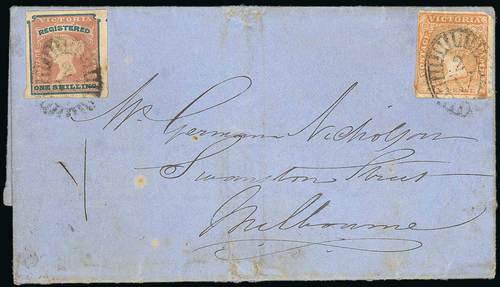 VICTORIA
REGISTERED
ONE SHILLING
VICTORIA
Mr. Germann Nicholson
Swanston Street
Melbourne